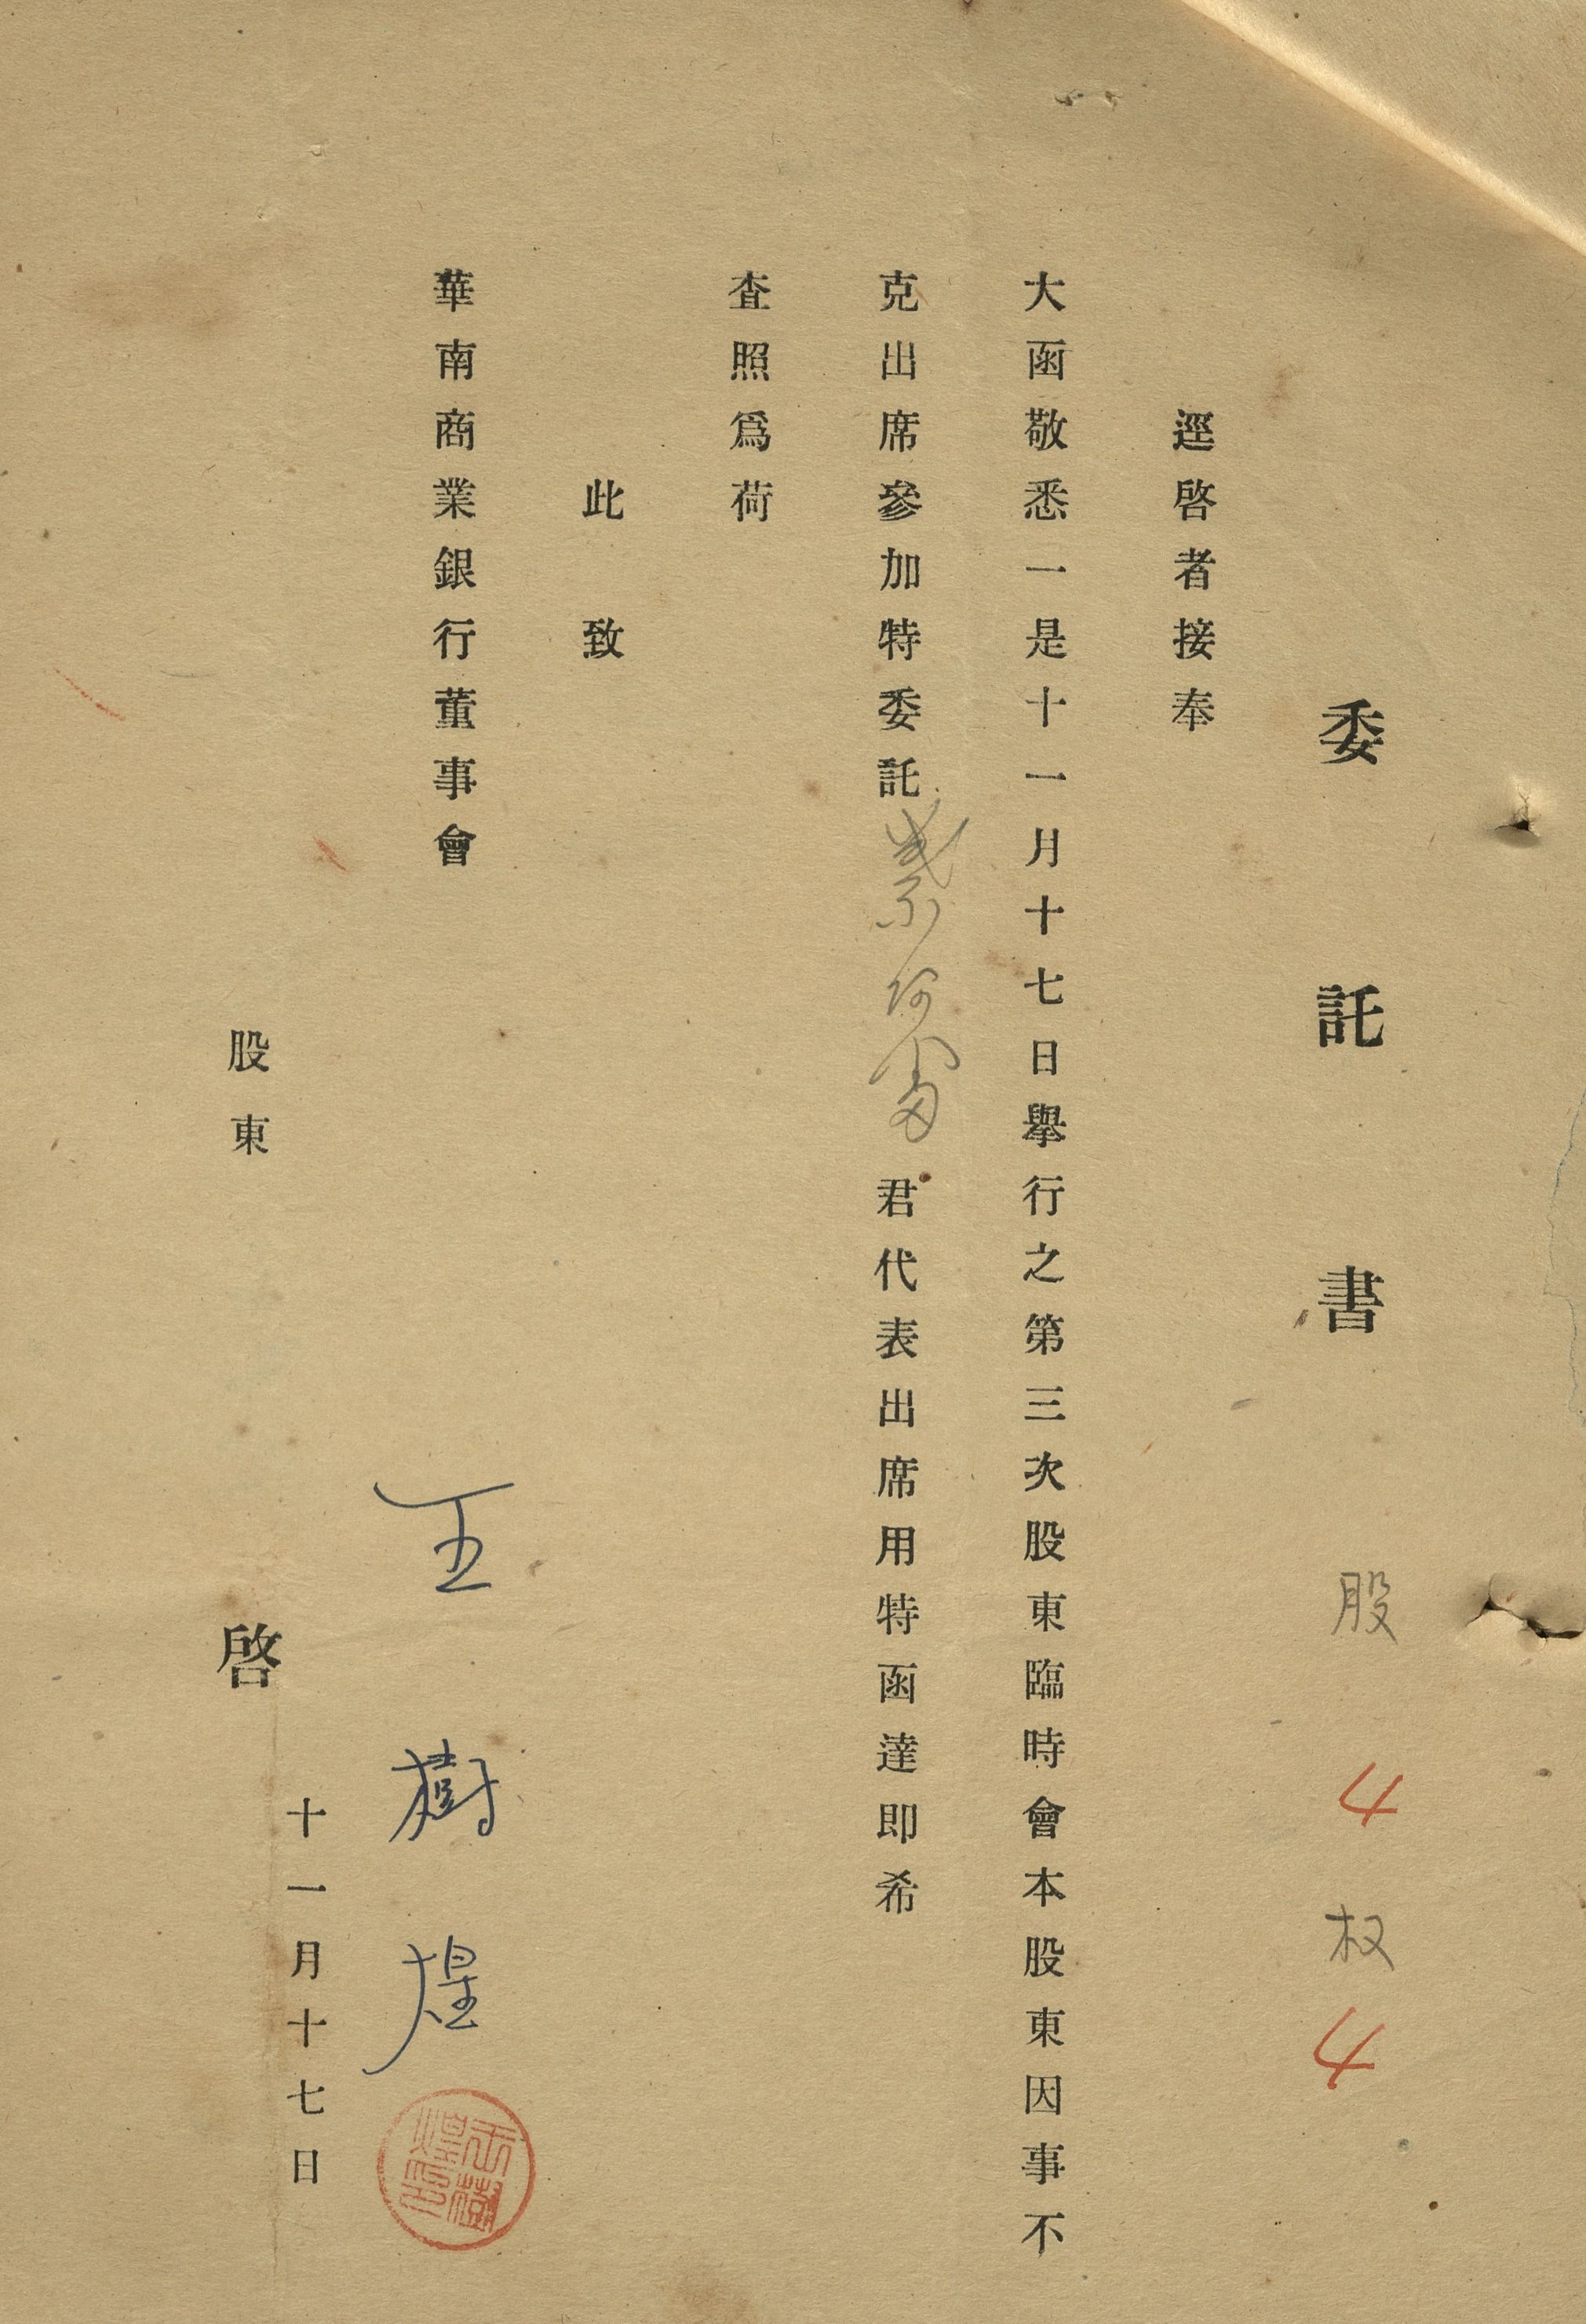 委託書 股 4 权 4
逕啓者接奉
大函敬悉一是十一月十七日舉行之第三次股東臨時會本股東因事不
克出席參加特委託 君代表出席用特函達即希
査照爲荷
此致
華南商業銀行董事會
王樹煌
王樹煌印
十一月十七日
股東 啓